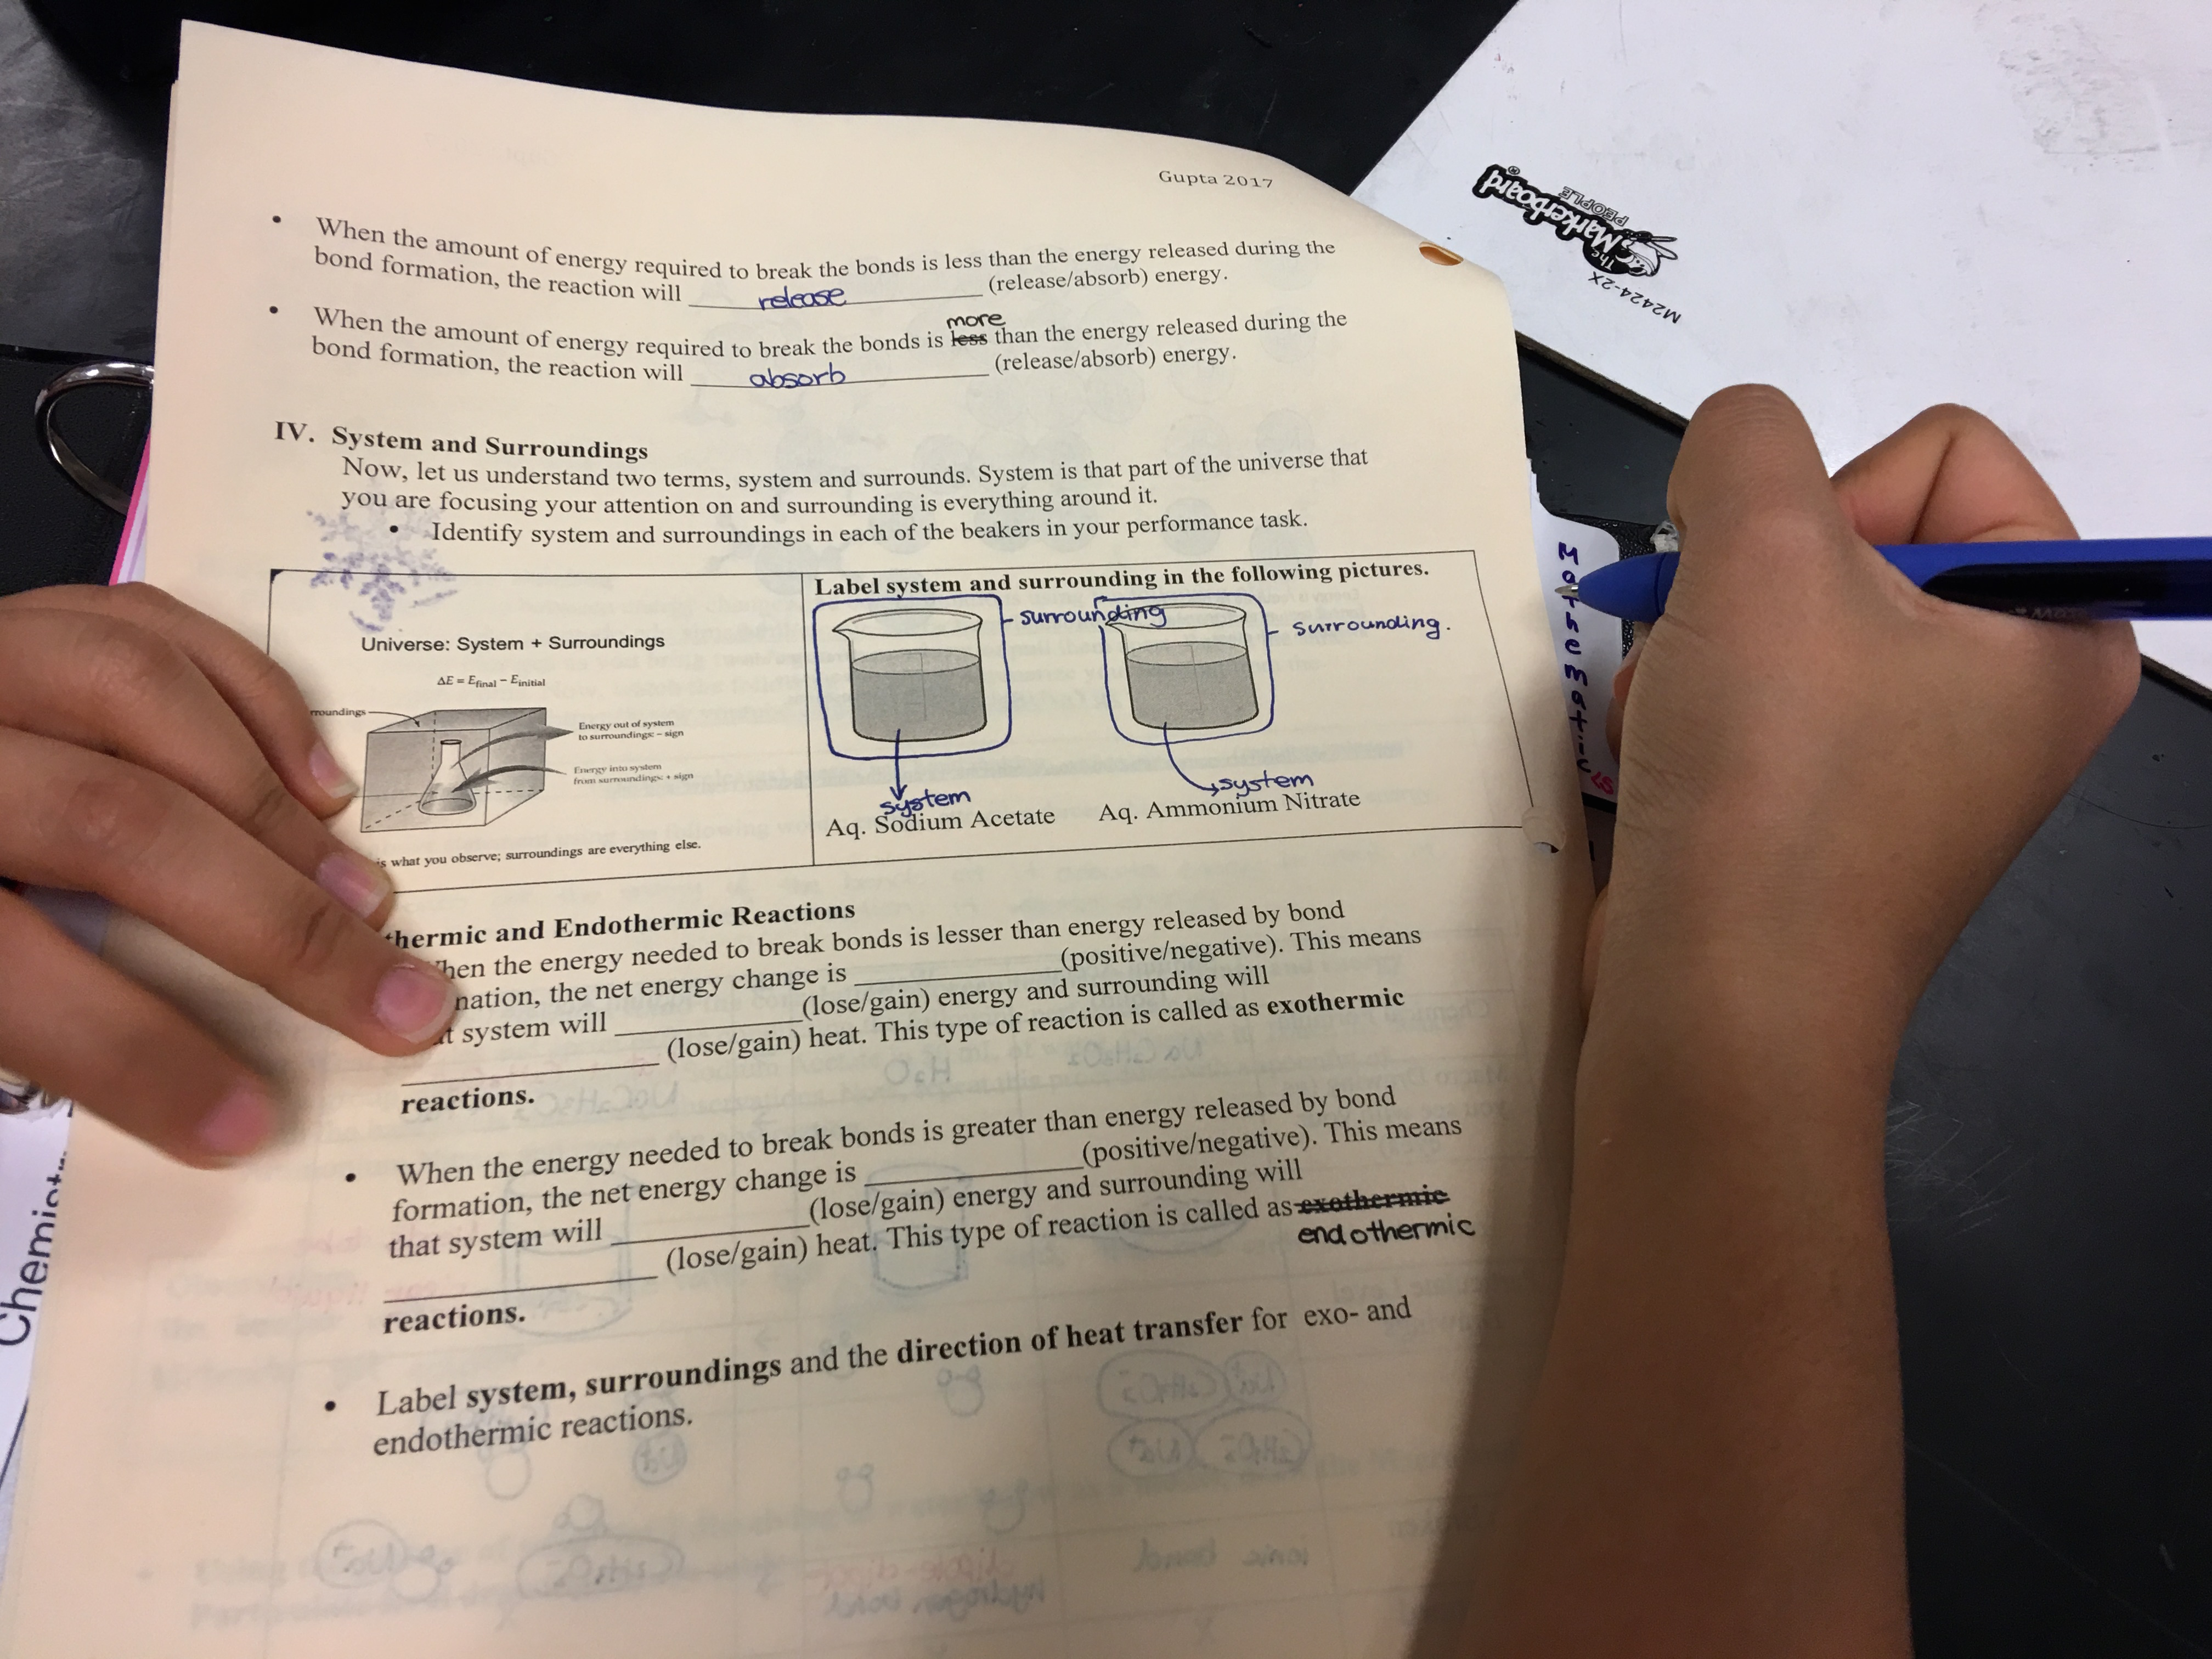 Gupta 2017
• When the amount of energy required to break the bonds is less than the energy released during the
bond formation, the reaction will release (release/absorb) energy.
more
• When the amount of energy required to break the bonds is less than the energy released during the
bond formation, the reaction will absorb (release/absorb) energy.
IV. System and Surroundings
Now, let us understand two terms, system and surrounds. System is that part of the universe that
you are focusing your attention on and surrounding is everything around it.
• Identify system and surroundings in each of the beakers in your performance task.
Universe: System + Surroundings
ΔE = Efinal − Einitial
rroundings
Energy out of system
to surroundings: − sign
Energy into system
from surroundings: + sign
is what you observe; surroundings are everything else.
Label system and surrounding in the following pictures.
surrounding
surrounding.
system
system
Aq. Sodium Acetate
Aq. Ammonium Nitrate
thermic and Endothermic Reactions
hen the energy needed to break bonds is lesser than energy released by bond
nation, the net energy change is ____________ (positive/negative). This means
t system will ____________ (lose/gain) energy and surrounding will
____________ (lose/gain) heat. This type of reaction is called as exothermic
reactions.
• When the energy needed to break bonds is greater than energy released by bond
formation, the net energy change is ____________ (positive/negative). This means
that system will ____________ (lose/gain) energy and surrounding will
____________ (lose/gain) heat. This type of reaction is called as exothermic
endothermic
reactions.
• Label system, surroundings and the direction of heat transfer for exo- and
endothermic reactions.
The Markerboard
PEOPLE
M2424-2X